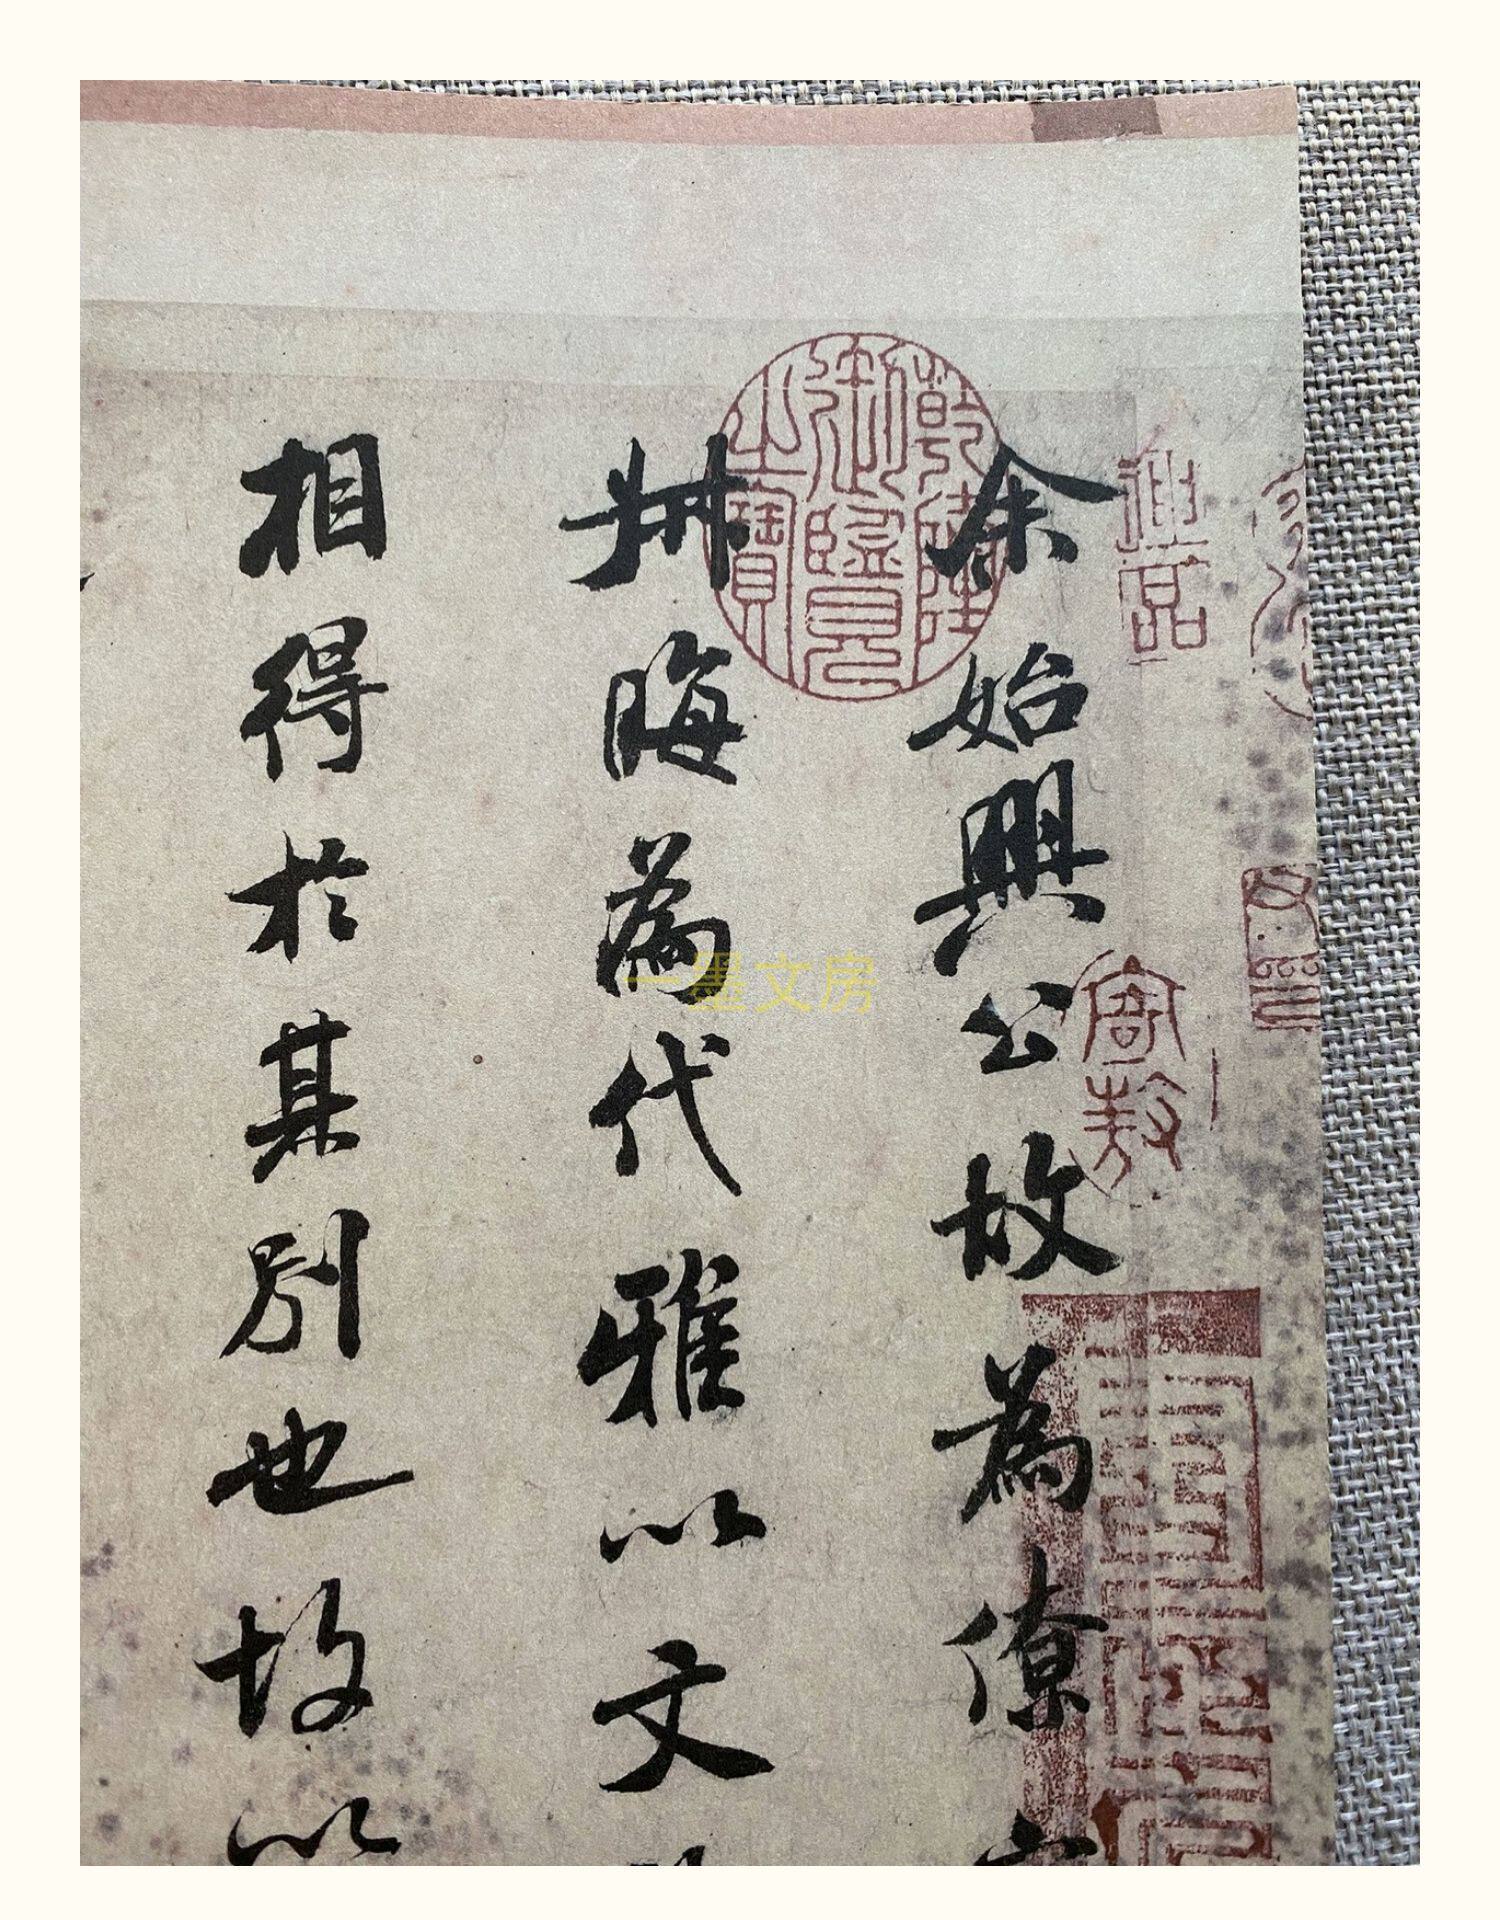 余始興公故為僚
州晦為代雅以文
相得於其別也故以
乾隆御覽之寶
一墨文房